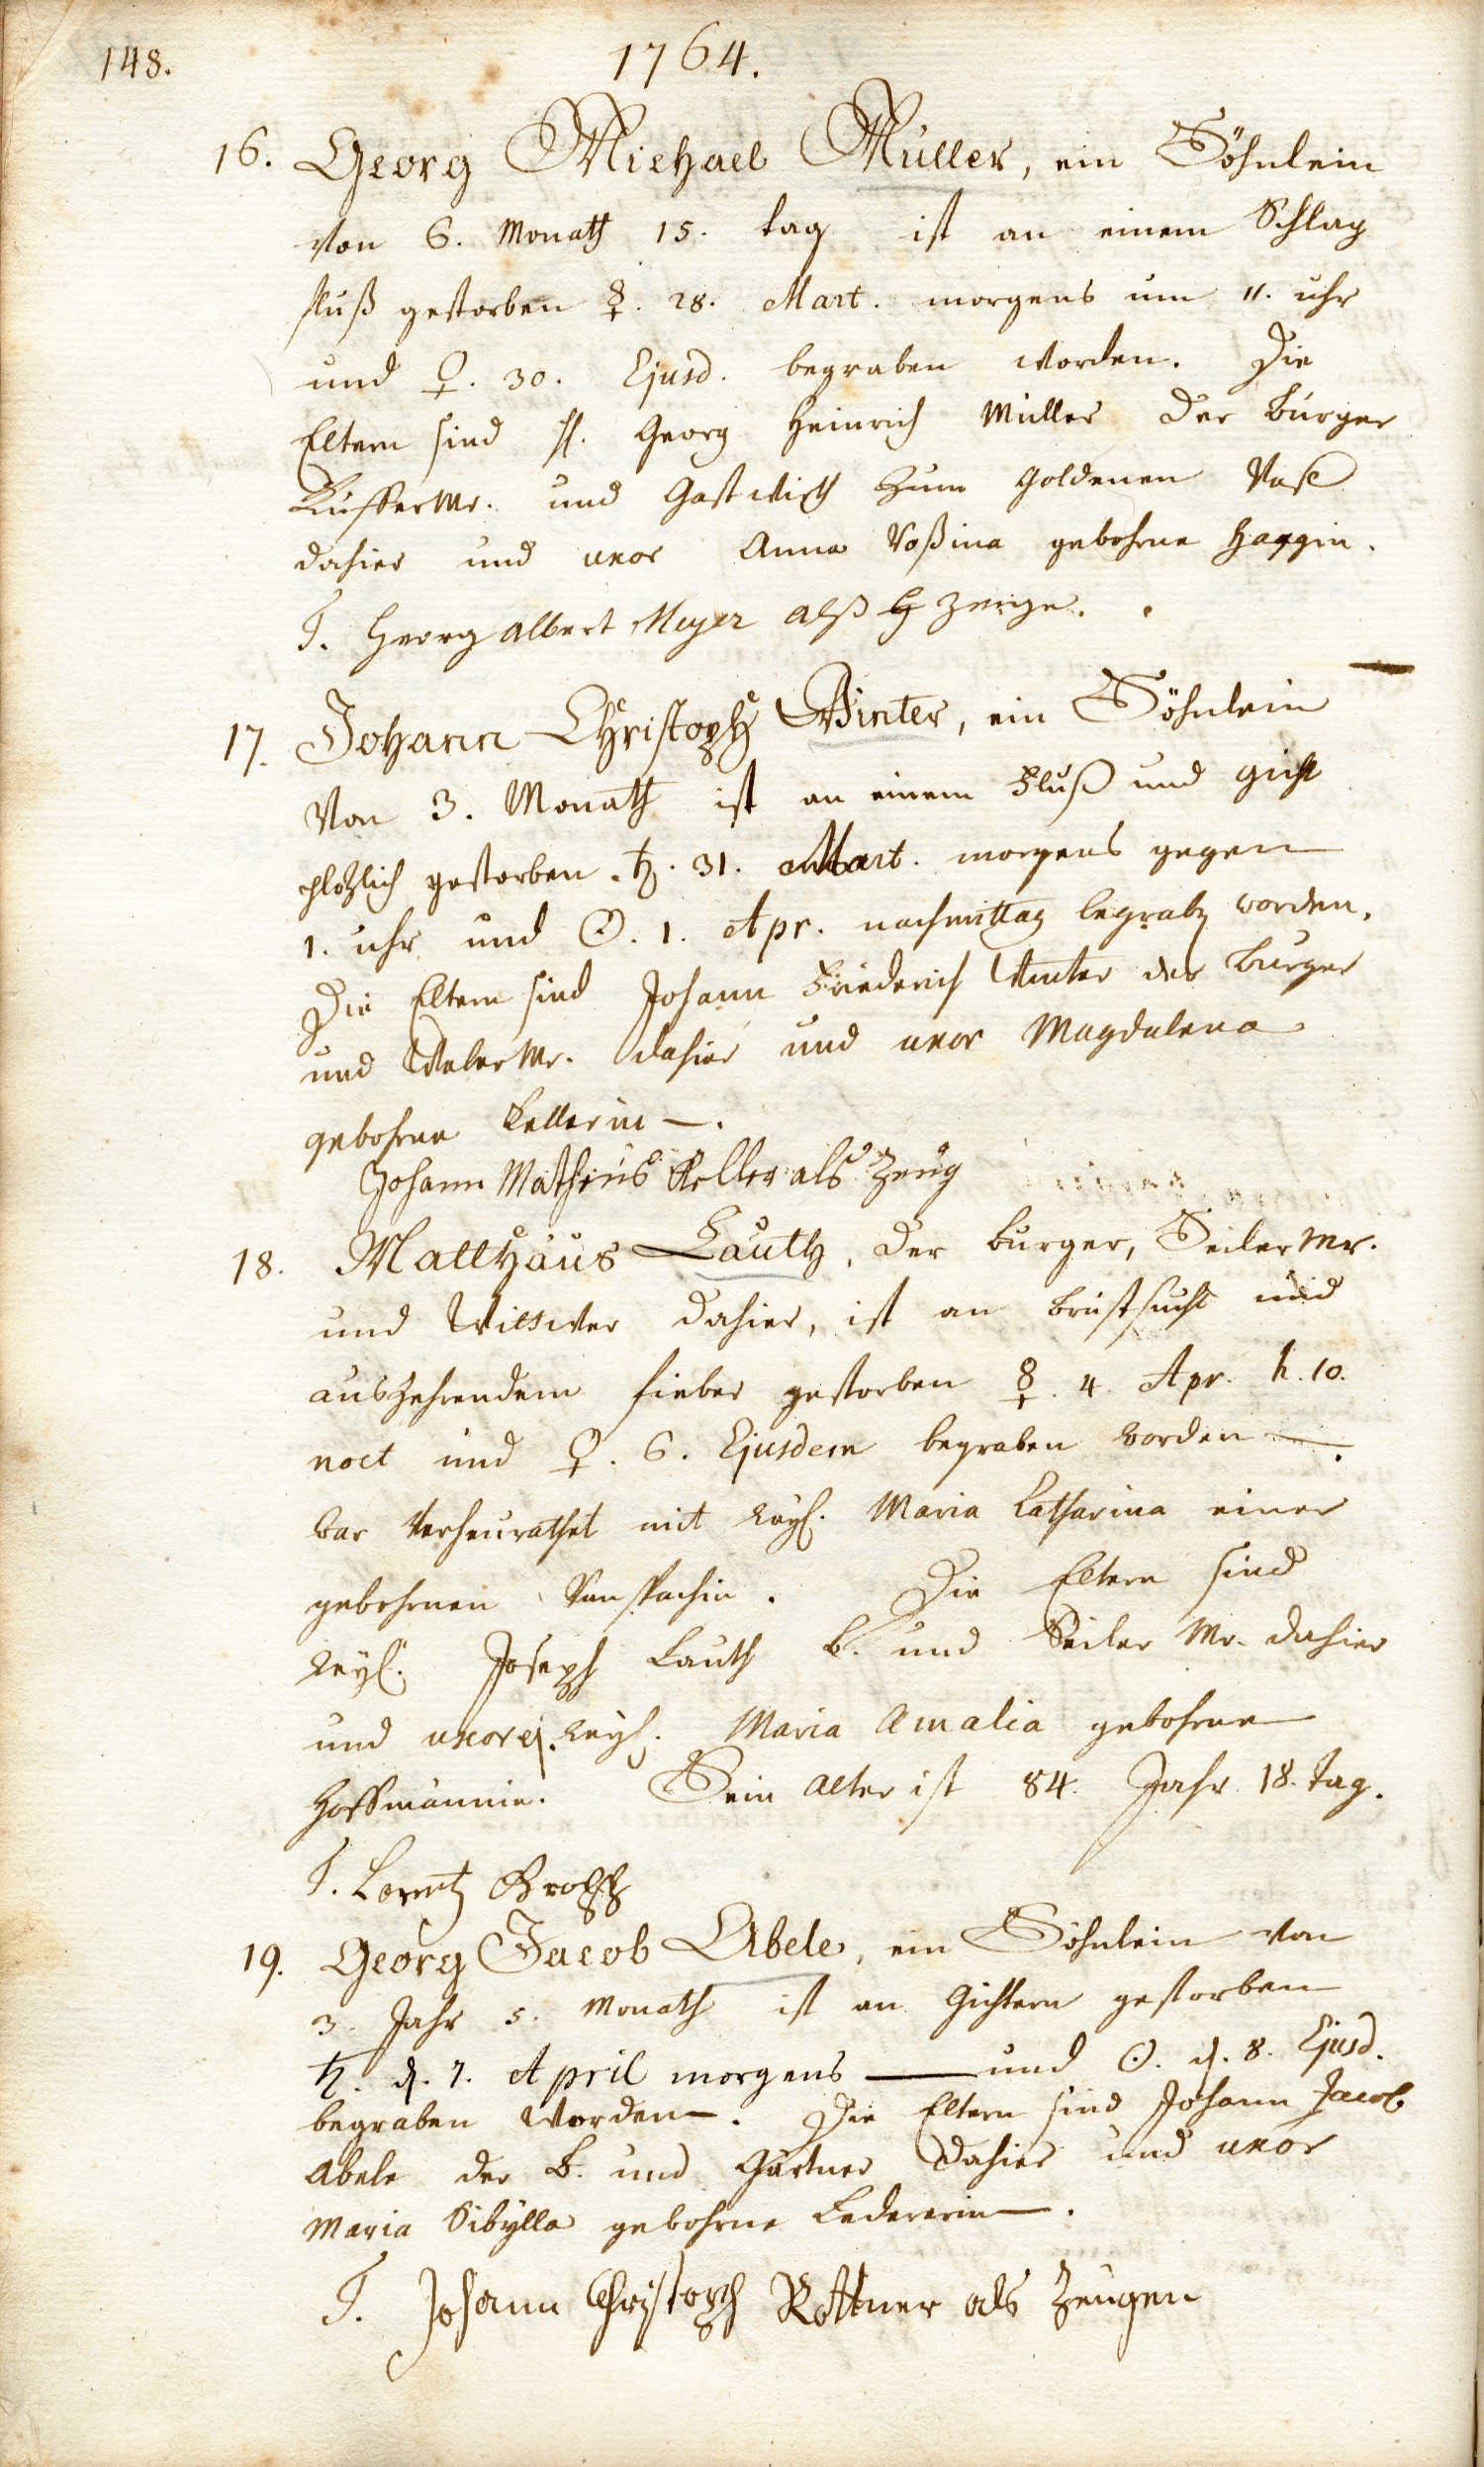 148.
1764.
16. Georg Michael Müller, ein Söhnlein
von 6. Monath 15. tag ist an einem Schlag
fluß gestorben ☿. 28. Mart. morgens um 11. uhr
und ♀. 30. Ejusd. begraben worden. Die
Eltern sind H. Georg Heinrich Müller der Burger
Kuffer Mr. und Gastwirth zum goldenen
dahier und uxor Anna Roßina gebohrne Haggin.
T. Georg Albert Meyer alß Zeuge.
17. Johann Christoph Winter, ein Söhnlein
von 3. Monath ist an einem Fluß und Gicht
plözlich gestorben ♄. 31. Mart. morgens gegen
1. uhr und ☉. 1. Apr. nachmittag begraben worden.
Die Eltern sind Johann Friederich Winter der Burger
und Weber Mr. dahier und uxor Magdalena
gebohrne Kellerin —.
Johann Matheus Keller als Zeug
18. Matthäus Lauth, der Burger, Seiler Mr.
und Wittwer dahier, ist an Brustsucht und
auszehrendem fieber gestorben ☿. 4. Apr. h. 10.
noct und ♀. 6. Ejusdem begraben worden —.
war verheurathet mit weyl. Maria Catharina einer
gebohrnen . Die Eltern sind
weyl. Joseph Lauth B. und Seiler Mr. dahier
und uxor ej. weyl. Maria Amalia gebohrne
Hoffmännin. Sein Alter ist 84. Jahr 18. tag.
T. Lorentz
19. Georg Jacob Abele, ein Söhnlein von
3. Jahr 5. Monath ist an Gichtern gestorben
♄. d. 7. April morgens — und ☉. d. 8. Ejusd.
begraben worden —. Die Eltern sind Johann Jacob
Abele der B. und Gärtner dahier und uxor
Maria Sibylla gebohrne Ledererin —.
T. Johann Christoph Rottner als Zeugen